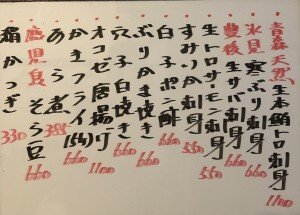 青森天然生本鮪トロ刺身 1100
氷見寒ぶり刺身
豊後生サバ刺身 660
生トロサーモン刺身 550
すみいか刺身 550
白子ポン酢 660
ぶりかま焼き 660
穴子白焼き 660
オコゼ唐揚げ 1100
かきフライ 660
あら煮
鹿児島そら豆 660
絹かつぎ 330